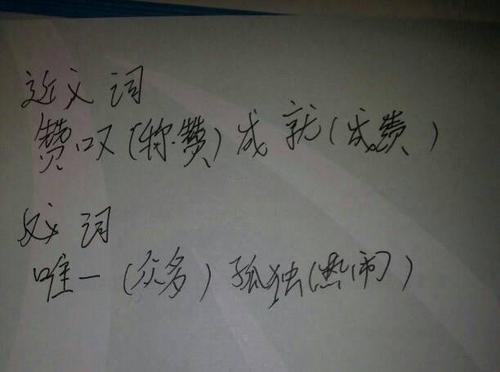 近义词
赞叹(称赞)成就(成 )
反义词
唯一(众多)孤独(热闹)